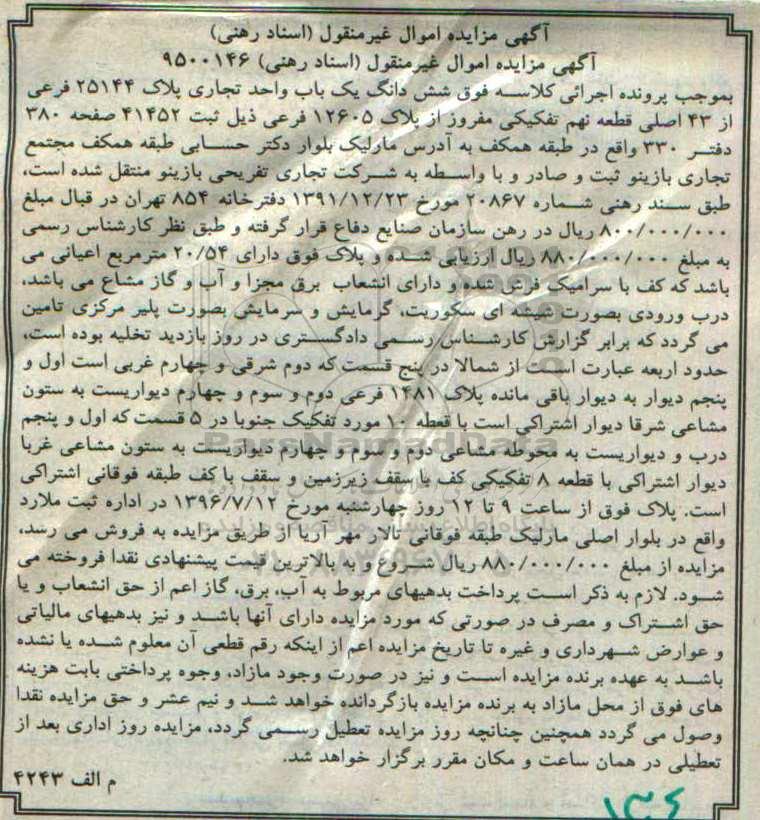 آگهی مزایده اموال غیرمنقول (اسناد رهنی)
آگهی مزایده اموال غیرمنقول (اسناد رهنی) ۹۵۰۰۱۴۶
بموجب پرونده اجرائی کلاسه فوق شش دانگ یک باب واحد تجاری پلاک ۲۵۱۴۴ فرعی
از ۴۳ اصلی قطعه نهم تفکیکی مفروز از پلاک ۱۲۶۰۵ فرعی ذیل ثبت ۴۱۴۵۲ صفحه ۳۸۰
دفتر ۳۳۰ واقع در طبقه همکف به آدرس مارلیک بلوار دکتر حسابی طبقه همکف مجتمع
تجاری بازینو ثبت و صادر و با واسطه به شرکت تجاری تفریحی بازینو منتقل شده است،
طبق سند رهنی شماره ۲۰۸۶۷ مورخ ۱۳۹۱/۱۲/۲۳ دفترخانه ۸۵۴ تهران در قبال مبلغ
۸۰۰/۰۰۰/۰۰۰ ریال در رهن سازمان صنایع دفاع قرار گرفته و طبق نظر کارشناس رسمی
به مبلغ ۸۸۰/۰۰۰/۰۰۰ ریال ارزیابی شده و پلاک فوق دارای ۲۰/۵۴ مترمربع اعیانی می
باشد که کف با سرامیک فرش شده و دارای انشعاب برق مجزا و آب و گاز مشاع می باشد،
درب ورودی بصورت شیشه ای سکوریت، گرمایش و سرمایش بصورت پلیر مرکزی تامین
می گردد که برابر گزارش کارشناس رسمی دادگستری در روز بازدید تخلیه بوده است،
حدود اربعه عبارت است از شمالا در پنج قسمت که دوم شرقی و چهارم غربی است اول و
پنجم دیوار به دیوار باقی مانده پلاک ۱۴۸۱ فرعی دوم و سوم و چهارم دیواریست به ستون
مشاعی شرقا دیوار اشتراکی است با قعطه ۱۰ مورد تفکیک جنوبا در ۵ قسمت که اول و پنجم
درب و دیواریست به محوطه مشاعی دوم و سوم و چهارم دیواریست به ستون مشاعی غربا
دیوار اشتراکی با قطعه ۸ تفکیکی کف با سقف زیرزمین و سقف با کف طبقه فوقانی اشتراکی
است. پلاک فوق از ساعت ۹ تا ۱۲ روز چهارشنبه مورخ ۱۳۹۶/۷/۱۲ در اداره ثبت ملارد
واقع در بلوار اصلی مارلیک طبقه فوقانی تالار مهر آریا از طریق مزایده به فروش می رسد،
مزایده از مبلغ ۸۸۰/۰۰۰/۰۰۰ ریال شروع و به بالاترین قیمت پیشنهادی نقدا فروخته می
شود. لازم به ذکر است پرداخت بدهیهای مربوط به آب، برق، گاز اعم از حق انشعاب و یا
حق اشتراک و مصرف در صورتی که مورد مزایده دارای آنها باشد و نیز بدهیهای مالیاتی
و عوارض شهرداری و غیره تا تاریخ مزایده اعم از اینکه رقم قطعی آن معلوم شده یا نشده
باشد به عهده برنده مزایده است و نیز در صورت وجود مازاد، وجوه پرداختی بابت هزینه
های فوق از محل مازاد به برنده مزایده بازگردانده خواهد شد و نیم عشر و حق مزایده نقدا
وصول می گردد همچنین چنانچه روز مزایده تعطیل رسمی گردد، مزایده روز اداری بعد از
تعطیلی در همان ساعت و مکان مقرر برگزار خواهد شد.
م الف ۴۲۴۳
ParsNamadData